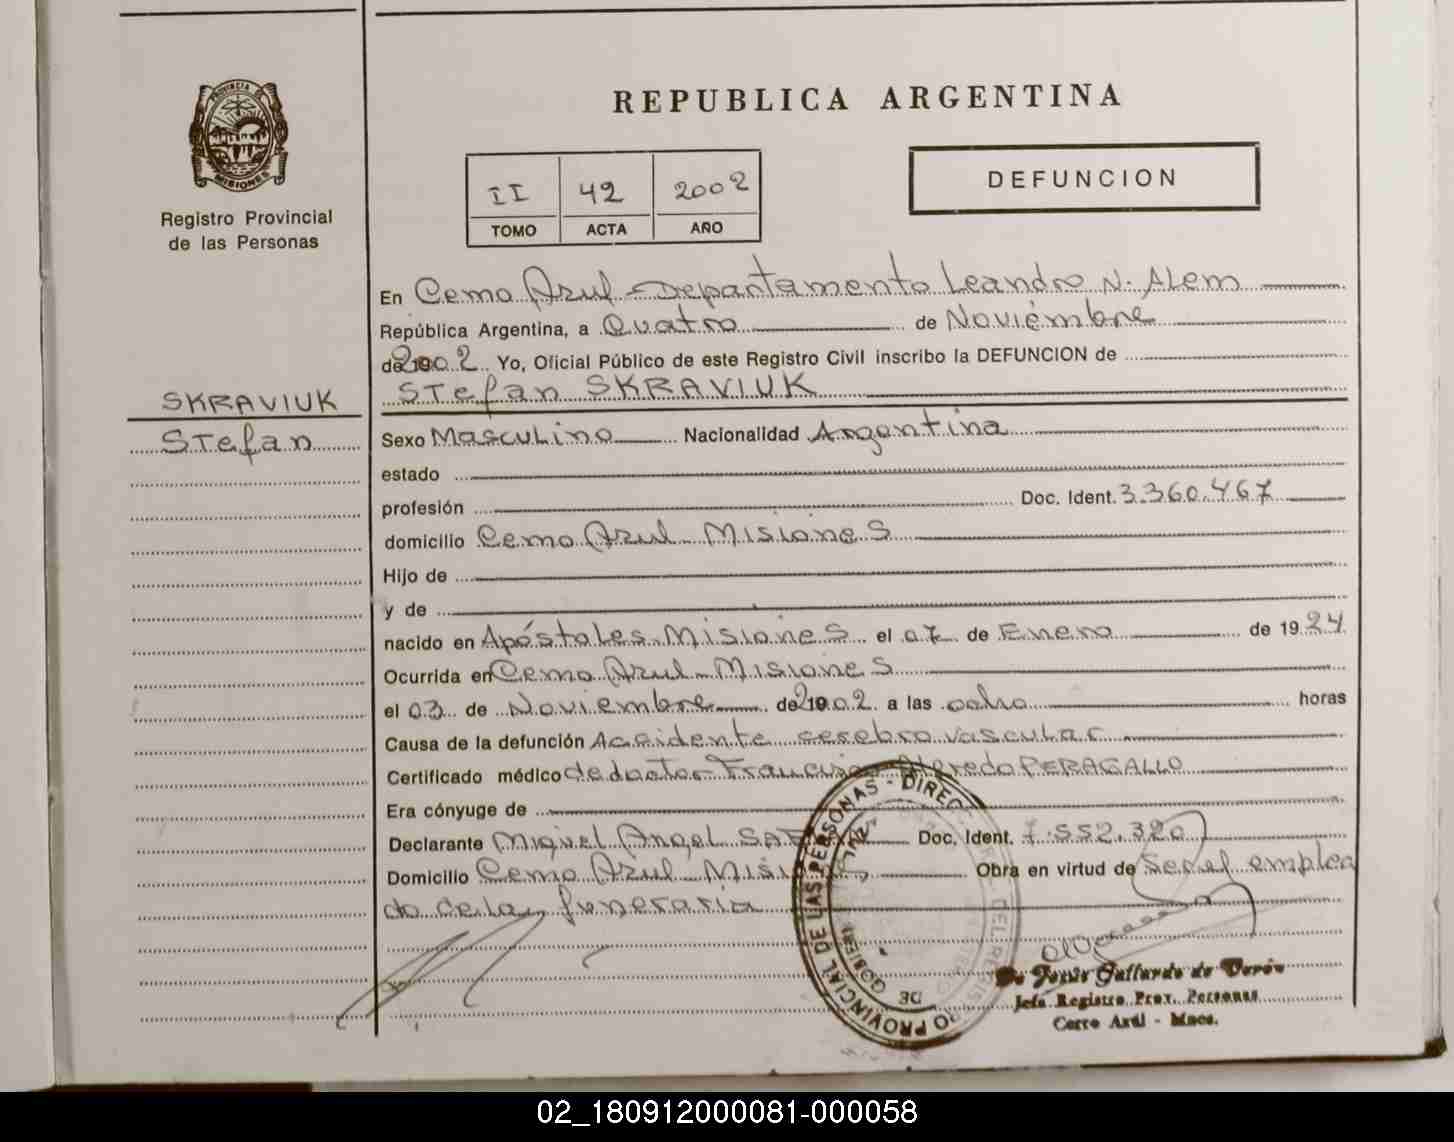 PROVINCIA DE
MISIONES
Registro Provincial
de las Personas
SKRAVIUK
Stefan
REPUBLICA ARGENTINA
II 42 2002
TOMO ACTA AÑO
DEFUNCION
En Cerro Azul - Departamento Leandro N. Alem
República Argentina, a Cuatro de Noviembre
de 2002. Yo, Oficial Público de este Registro Civil inscribo la DEFUNCION de
Stefan SKRAVIUK
Sexo Masculino Nacionalidad Argentina
estado
profesión Doc. Ident. 3.360.467
domicilio Cerro Azul - Misiones
Hijo de
y de
nacido en Apóstoles - Misiones el 07 de Enero de 1924
Ocurrida en Cerro Azul - Misiones
el 03 de Noviembre de 2002 a las ocho horas
Causa de la defunción Accidente cerebro vascular
Certificado médico de doctor Francisco Alfredo PERAGALLO
Era cónyuge de
Declarante Miguel Angel Doc. Ident. 7.552.320
Domicilio Cerro Azul - Misiones Obra en virtud de Ser el emplea
do de la funeraria
DE LAS PERSONAS - DIREC
PROVINCIAL
Gallardo de Verón
Jefa Registro Prov. Personas
Cerro Azul - Mnes.
02_180912000081-000058